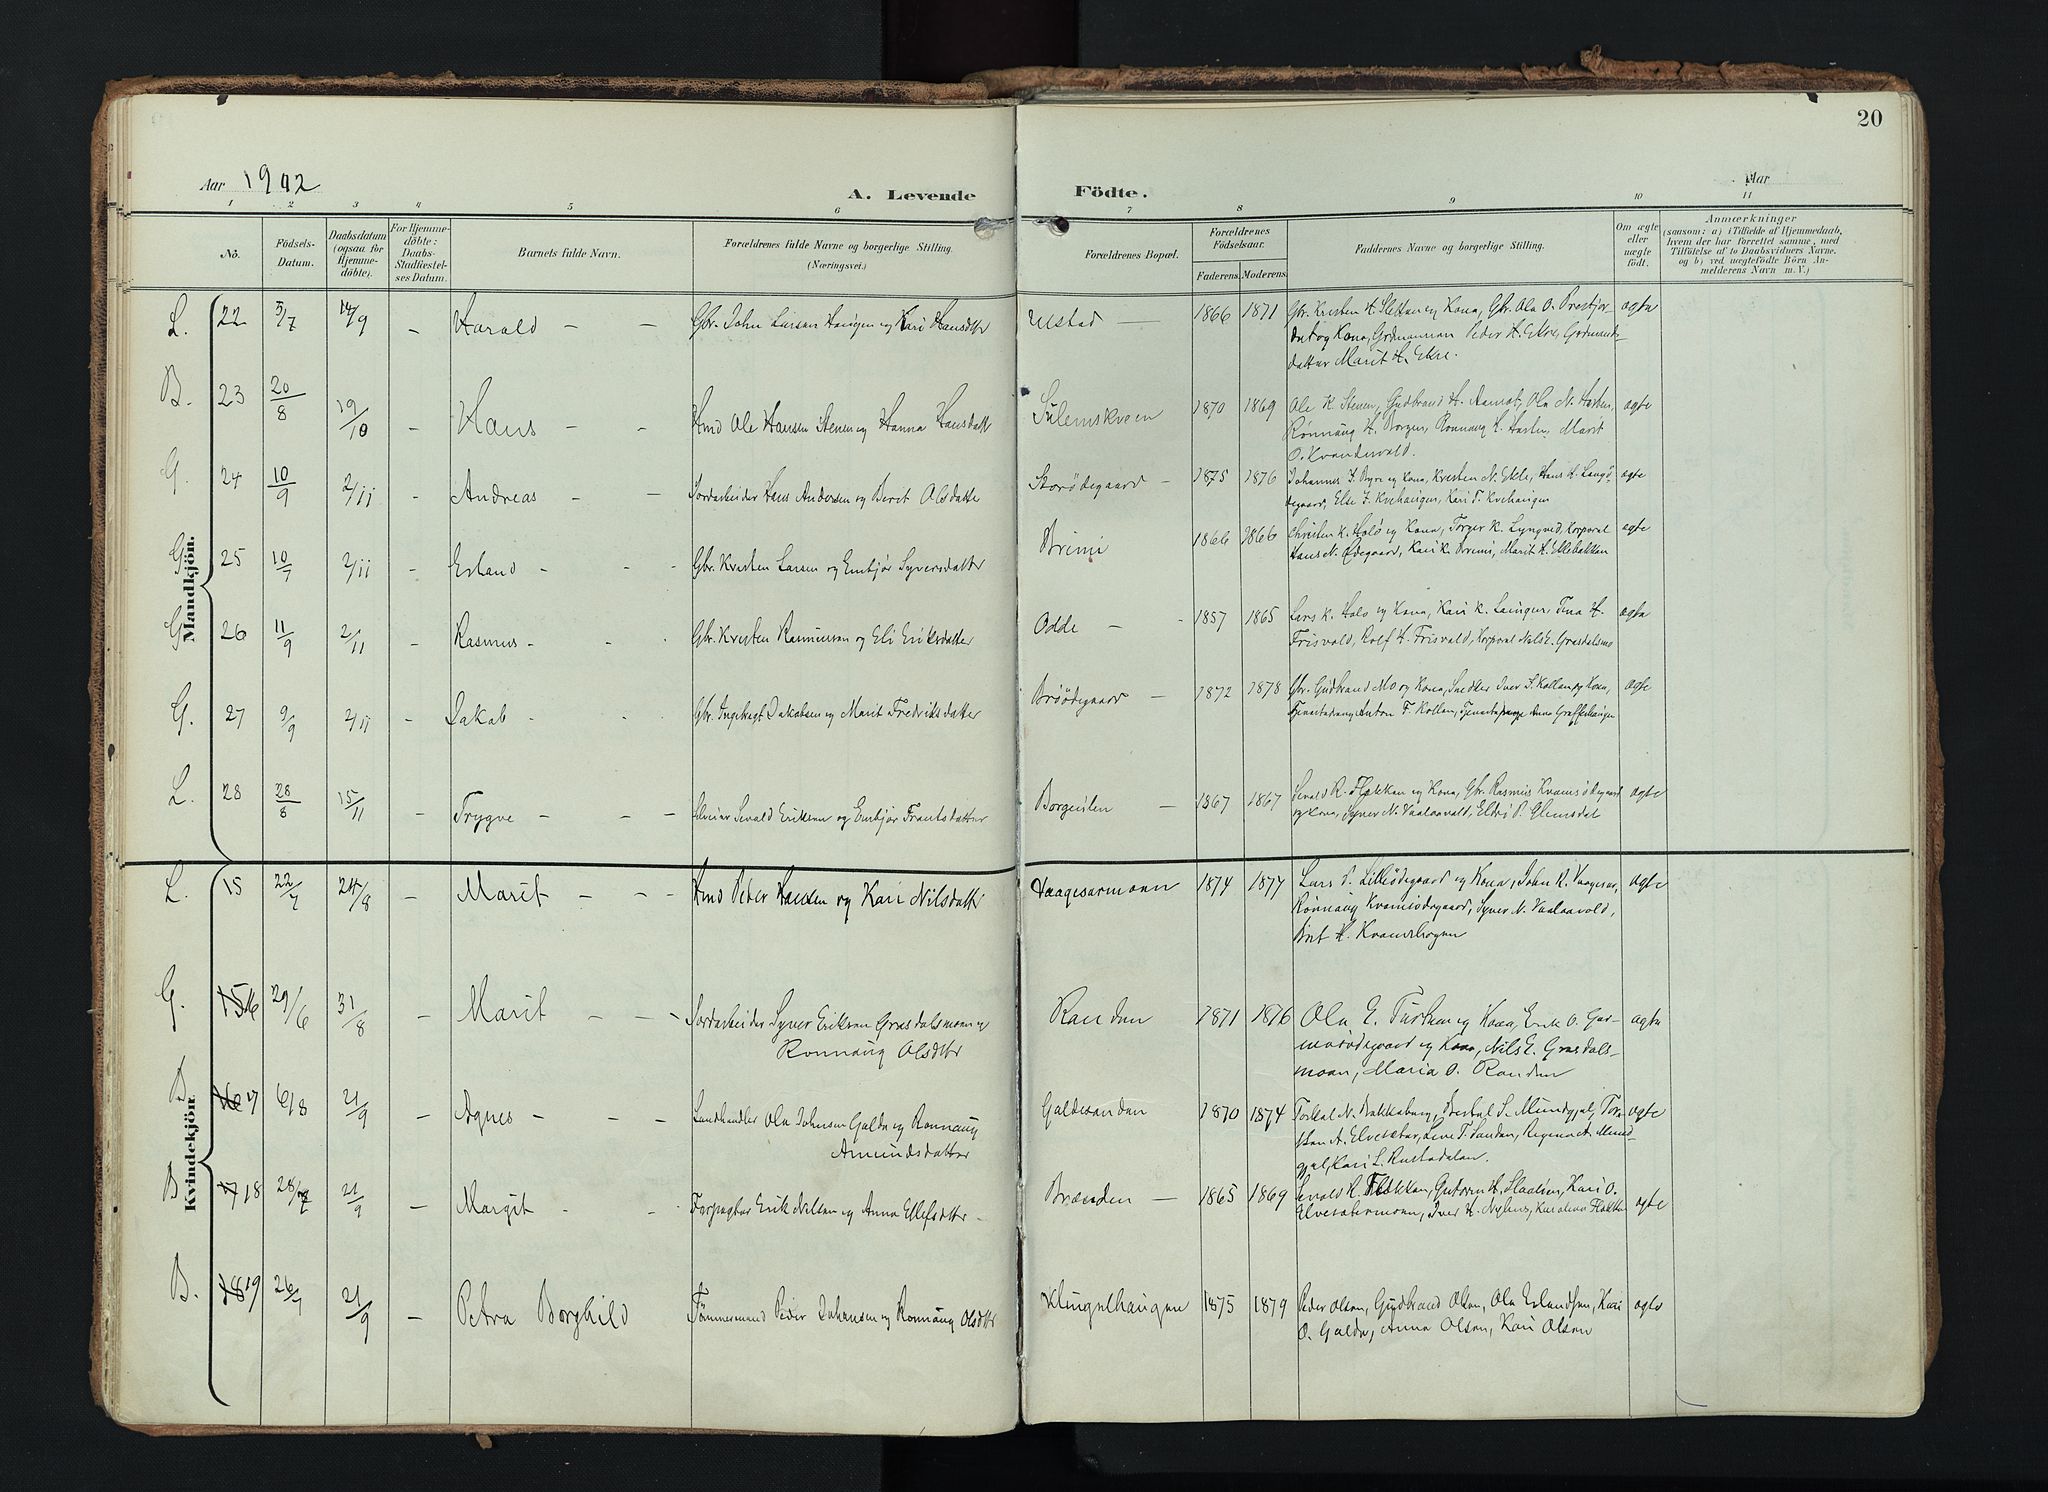 20
Aar 1902
A. Levende
Födte.
Aar
1 2 3 4 5 6 7 8 9 10 11
No.
Födsels-
Datum.
Daabsdatum
(ogsaa for
Hjemme-
döbte).
For Hjemme-
döbte:
Daabs-
Stadfæstel-
ses Datum.
Barnets fulde Navn.
Forældrenes fulde Navne og borgerlige Stilling.
(Næringsvei.)
Forældrenes Bopæl.
Forældrenes
Födselsaar.
Faderens. Moderens.
Faddernes Navne og borgerlige Stilling.
Om ægte
eller
uægte
födt.
Anmærkninger
(saasom: a) i Tilfælde af Hjemmedaab,
hvem der har forrettet samme, med
Tilföielse af to Daabsvidners Navne.
og b) ved uægtefödte Börn An-
melderens Navn m. V.)
Mandkjön.
L. 22 5/7 14/9 - Harald - - Gbr. John Larsen Haugen og Kari Hansdtr Ulstad - 1866 1871 Gbr. Kristen H. Sletten og Kona, Gbr. Ola O. Prestjor-
det og Kona, Grdmannen Peder H. Ekre, Grdmands-
datter Marit H. Ekre.
ægte
B. 23 20/8 19/10 - Hans - - Hmd Ole Hansen Stenen og Hanna Hansdatt Sulemskveen 1870 1869 Ole K. Stenen, Gudbrand H. Aamot, Ola N. Harten,
Rønnaug H. Borgen, Rønnaug H. Harten, Marit
O. Kvandervold.
ægte
G. 24 10/9 2/11 - Andreas - - Jordarbeider Hans Andersen og Berit Olsdatter Storødegaard - 1875 1876 Johannes J. Byre og Kona, Kristen N. Ekle, Hans H. Langø-
degaard, Else J. Kvehaugen, Kari T. Kvehaugen
ægte
G. 25 10/7 2/11 - Erland - - Gbr. Kristen Larsen og Embjør Syversdatter Brimi 1866 1866 Christen K. Holø og Kona, Torger K. Lyngved, Korporal
Hans N. Ødegaard, Kari K. Brimi, Marit H. Eklebakken
ægte
G 26 11/9 2/11 - Rasmus - - Gbr. Kristen Rasmussen og Eli Eriksdatter Odde - 1857 1865 Lars K. Holø og Kona, Kari K. , Tina H.
Frisvold, Rolf H. Frisvold, Korporal Nils E. Grasdalsmo
ægte
G. 27 9/9 2/11 - Jakob - - Gbr. Ingebrigt Jakobsen og Marit Fredriksdatter Brøødegaard - 1872 1878 Gbr. Gudbrand Mo og Kona, Snedker Iver S. Kollen og Kona,
Anton F. Kollen, Graffehaugen
ægte
L. 28 28/8 15/11 - Trygve - - Sevald Eriksen og Embjør Frantsdatter Borgeulen - 1867 1867 Sevald R. Flækken og Kona, Gbr. Rasmus Kramsødegaard
og Kona, Syver N. Vaalaavold, Eldri P. Glemsdal
ægte
Kvindekjön
L. 15 22/7 24/8 - Marit - - Hmd Peder Hansen og Kari Nilsdatter Vaagesarmoen 1874 1877 Lars P. Lilleødegaard og Kona, John K. Vaagesar,
Rønnaug Kramsødegaard, Syver N. Vaalaavold,
Brit H. Kramshagen
ægte
G. 16 29/6 31/8 - Marit - - - Jordarbeider Syver Eriksen Grasdalsmoen og
Rønnaug Olsdtr
Randen 1871 1876 Ola E. Tursten og Kona, Erik O. Gar-
og Kona, Nils E. Grasdals-
moen, Maria O. Randen
ægte
B 17 6/8 21/9 - Agnes - - Landhandler Ola Johnsen Galde og Rønnaug
Amundsdatter
Galdesanden 1870 1874 Torkel N. Bakkeberg, Bertel S. Mundgjel, Tor-
sten A. Elvesæter, Live T. Sanden, Mund-
gjel, Kari L. Rustadalen.
ægte
B 18 28/7 21/9 - Margit - - Forpagter Erik Nilsen og Anna Ellefsdtr - Brænden - 1865 1869 Sevald R. Flækken, Guttorm H. Slaalien, Kari O.
Elvesætermoen, Iver H. Nyhus, Karoline Flækken
ægte
B. 19 26/7 21/9 - Petra Borghild Tømmermand Peder Johansen og Rønnaug Olsdtr Klingelhaugen 1875 1879 Peder Olsen, Gudbrand Olsen, Ola Erlandsen, Kari
O. Galde, Anna Olsen, Kari Olsen
ægte